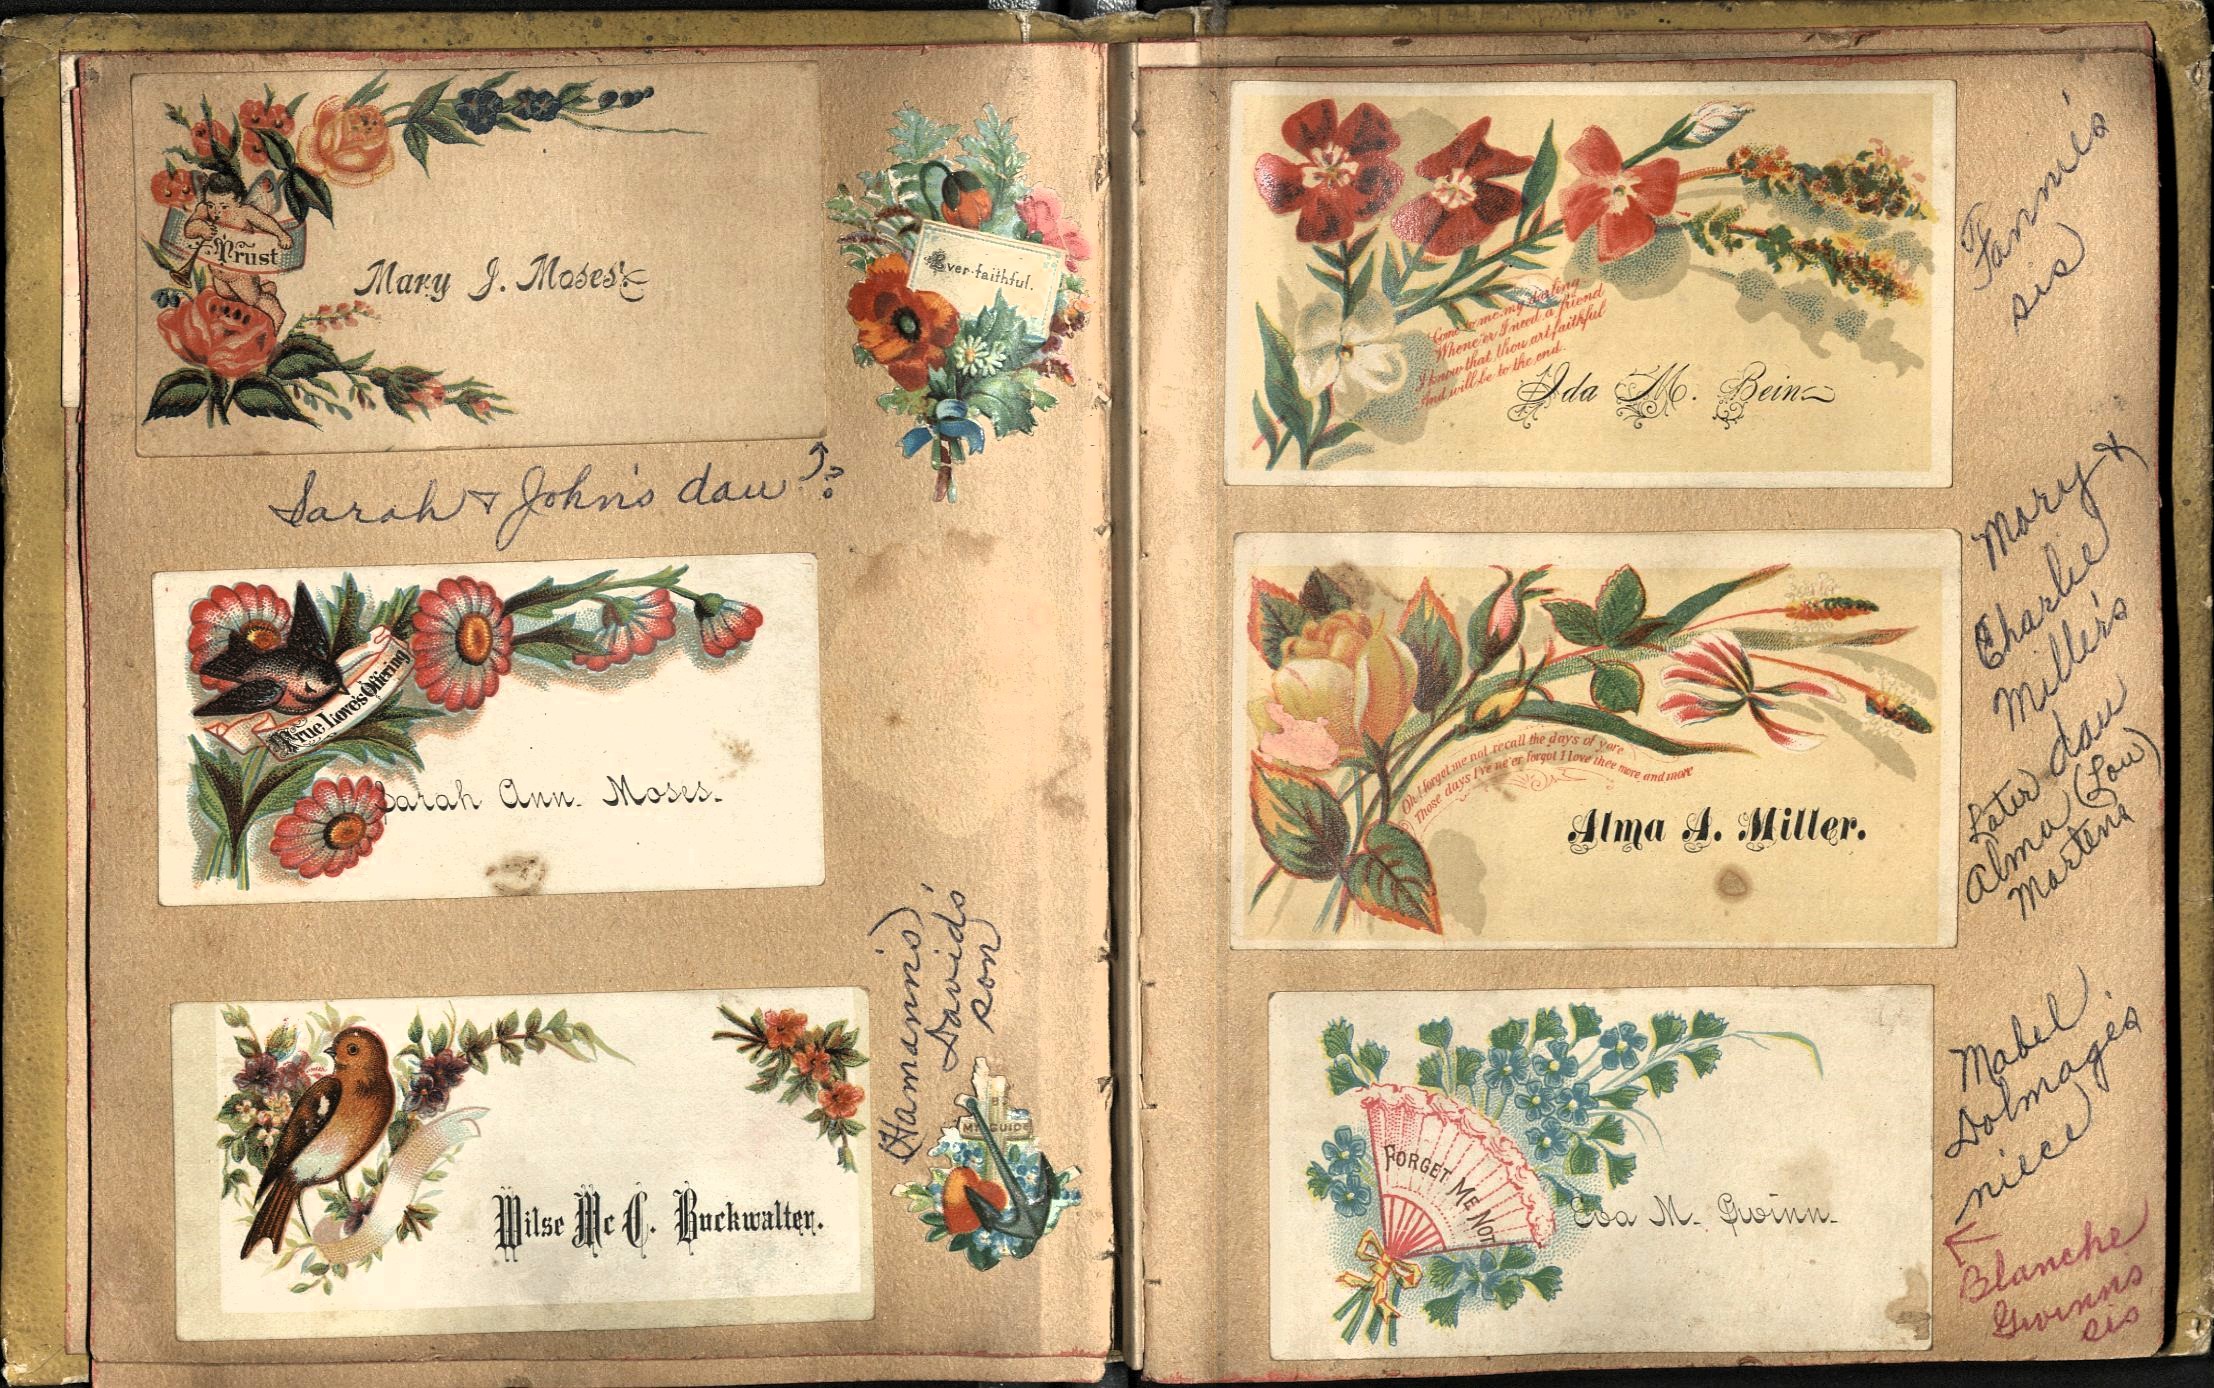 Trust
Mary J. Moses.
Ever faithful.
Sarah & John's dau ↑?
True Love's Offering
Sarah Ann. Moses.
(Hamann's)
David's
son
MY GUIDE
Wilse Mc C. Buckwalter.
Come to me my darling
Whene'er I need a friend
I know that thou art faithful
And will be to the end.
Ida M. Bein
Fannie's
sis
Oh! forget me not recall the days of yore
Those days I've ne'er forgot I love thee more and more
Alma A. Miller.
Mary &
Charlie
Miller's
dau
Later
Alma (Lou)
Martena
FORGET ME NOT
Eva M. Gwinn.
Mabel
Dolmage's
niece
← Blanche
Gwinns
sis